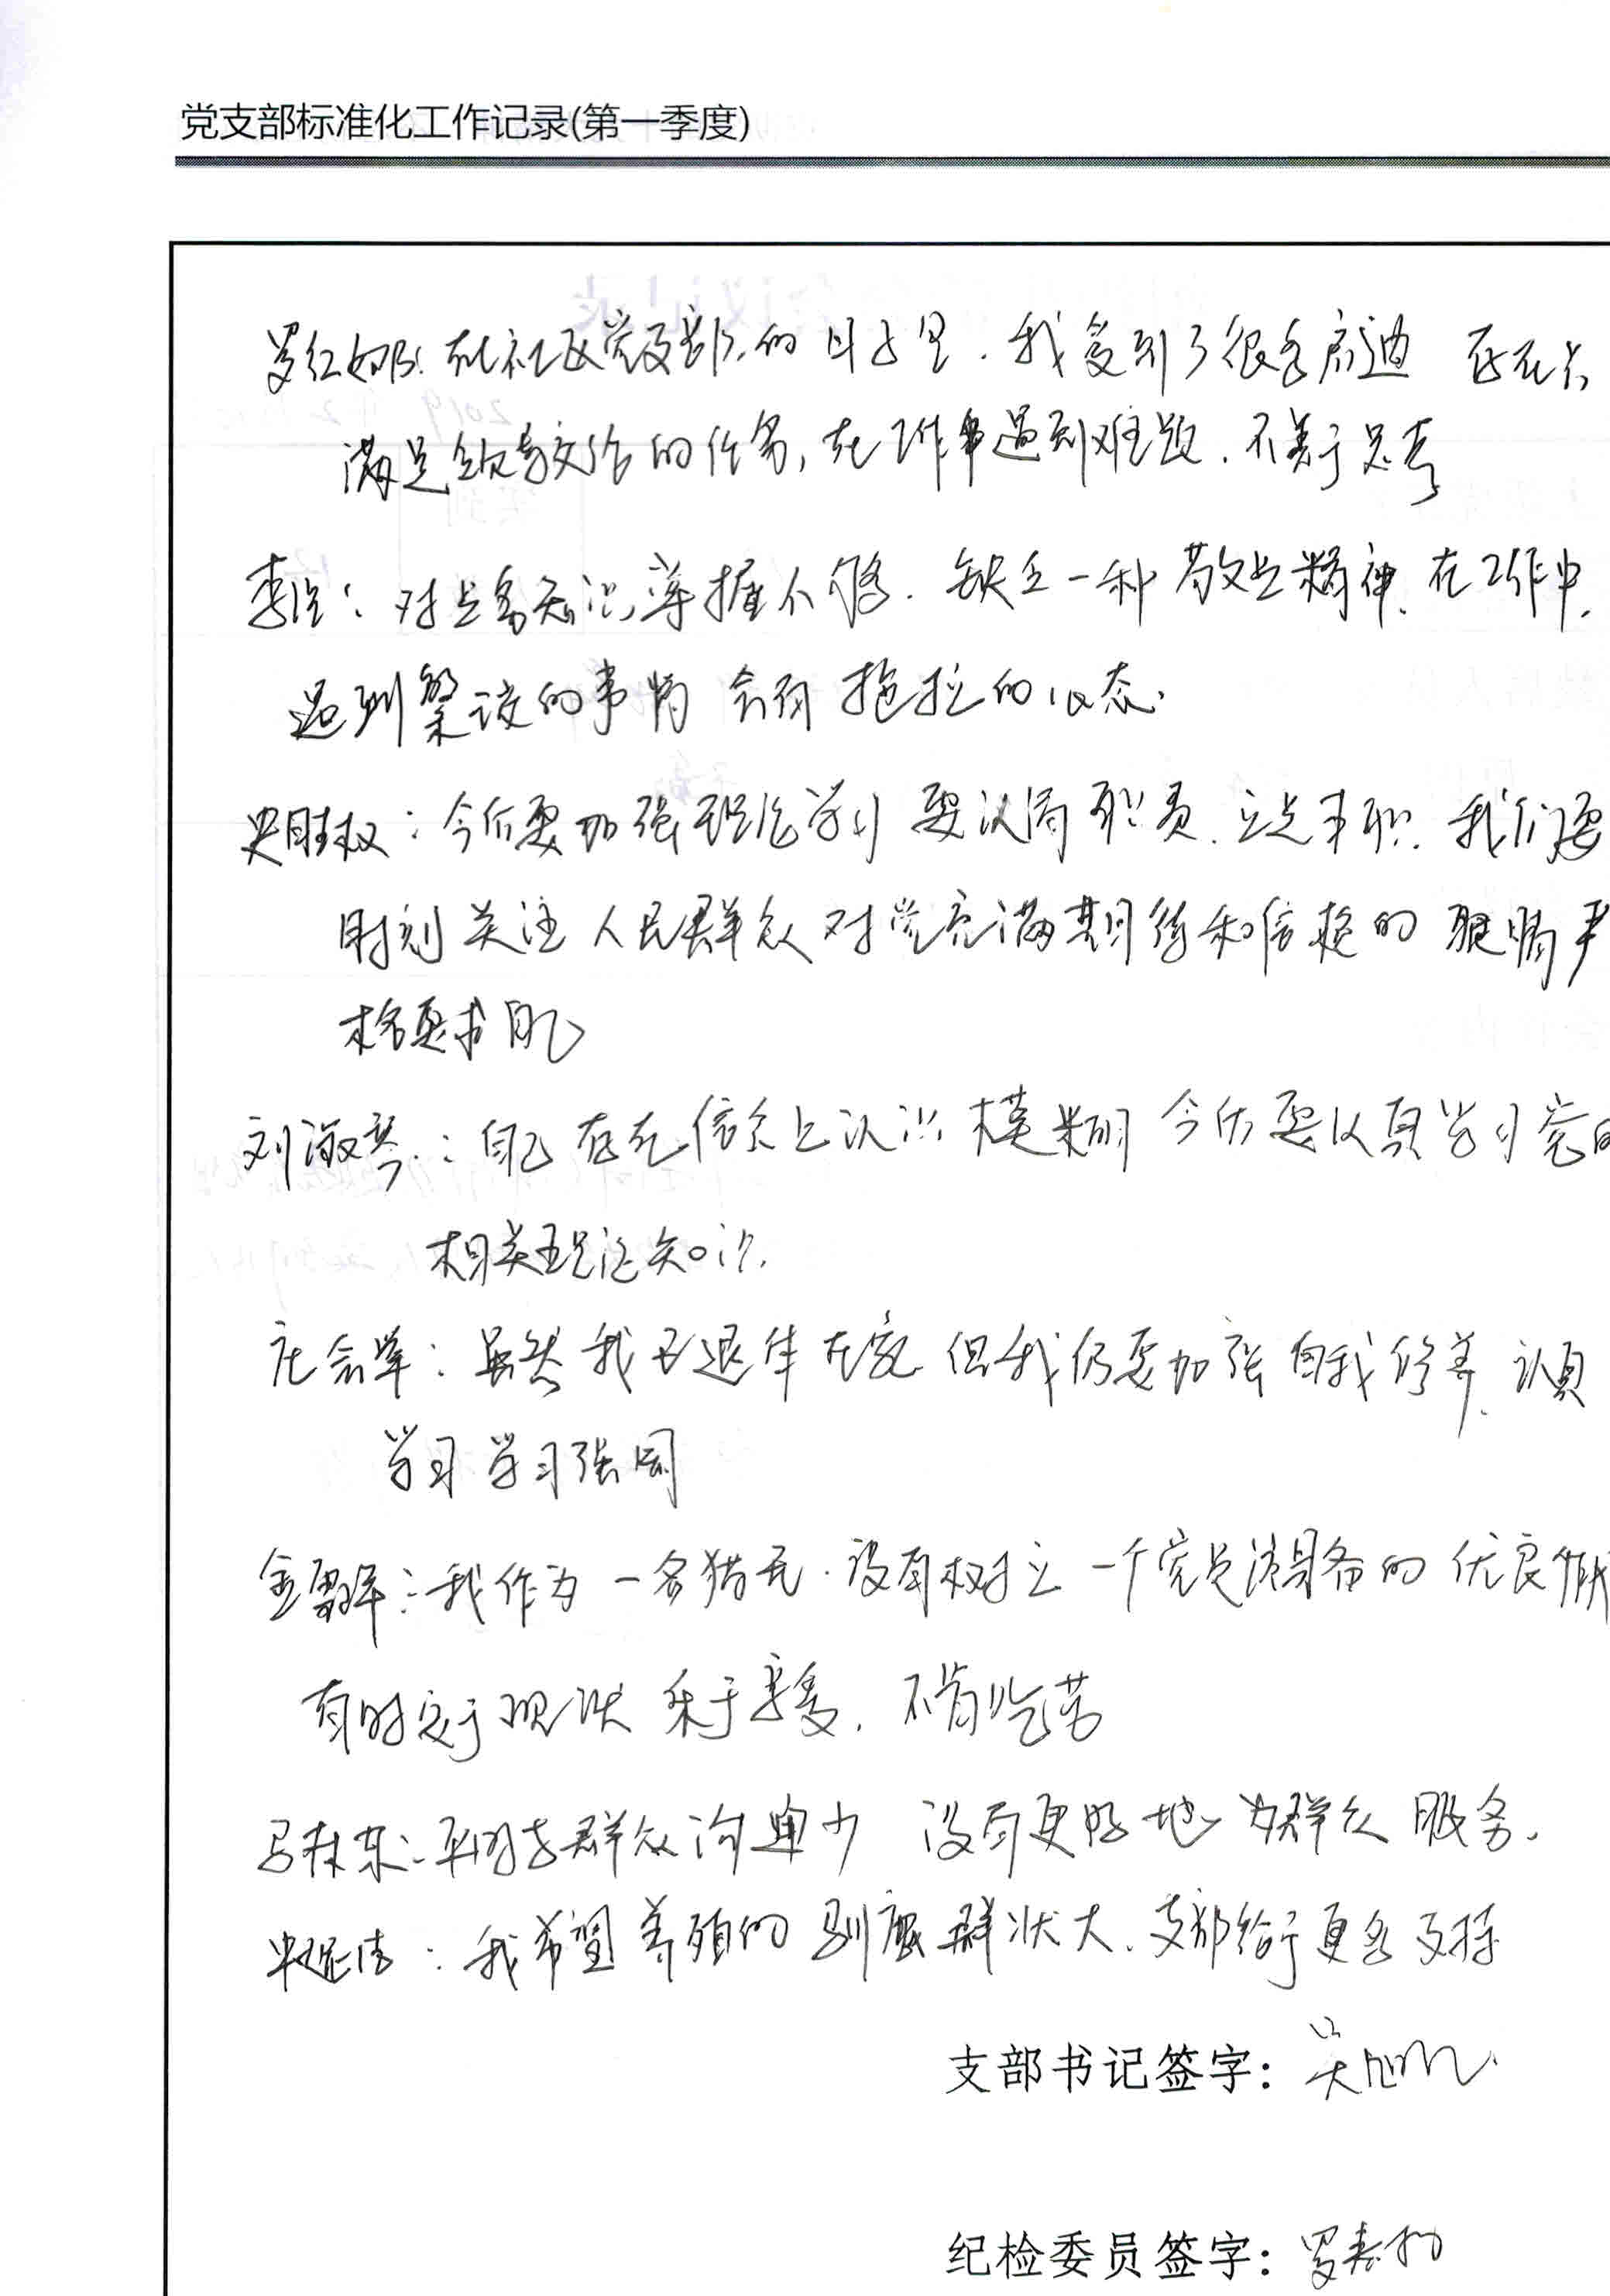 党支部标准化工作记录(第一季度)
罗红娜：在社区党支部的日子里.我受到了很多启迪 存在只
满足领导交给的任务,在工作中遇到难题.不善于思考
李：对业务知识掌握不够.缺乏一种敬业精神.在工作中.
遇到繁琐的事情会有拖拉的心态.
史胜权：今后要加强理论学习 要认清职责.立足本职.我们要
时刻关注人民群众对党充满期待和信赖的眼睛严
格要求自己
刘淑琴：自己存在信念上认识模糊 今后要认真学习党的
相关理论知识.
庄会军：虽然我已退休在家 但我仍要加强自我修养.认真
学习学习强国
金军：我作为一名党员.没有树立一个党员该具备的优良作风
有时安于现状 乐于享受.不肯吃苦
马林东：平时与群众沟通少 没有更好地为群众服务.
我希望养殖的驯鹿群状大.支部给于更多支持
支部书记签字：吴旭
纪检委员签字：罗春